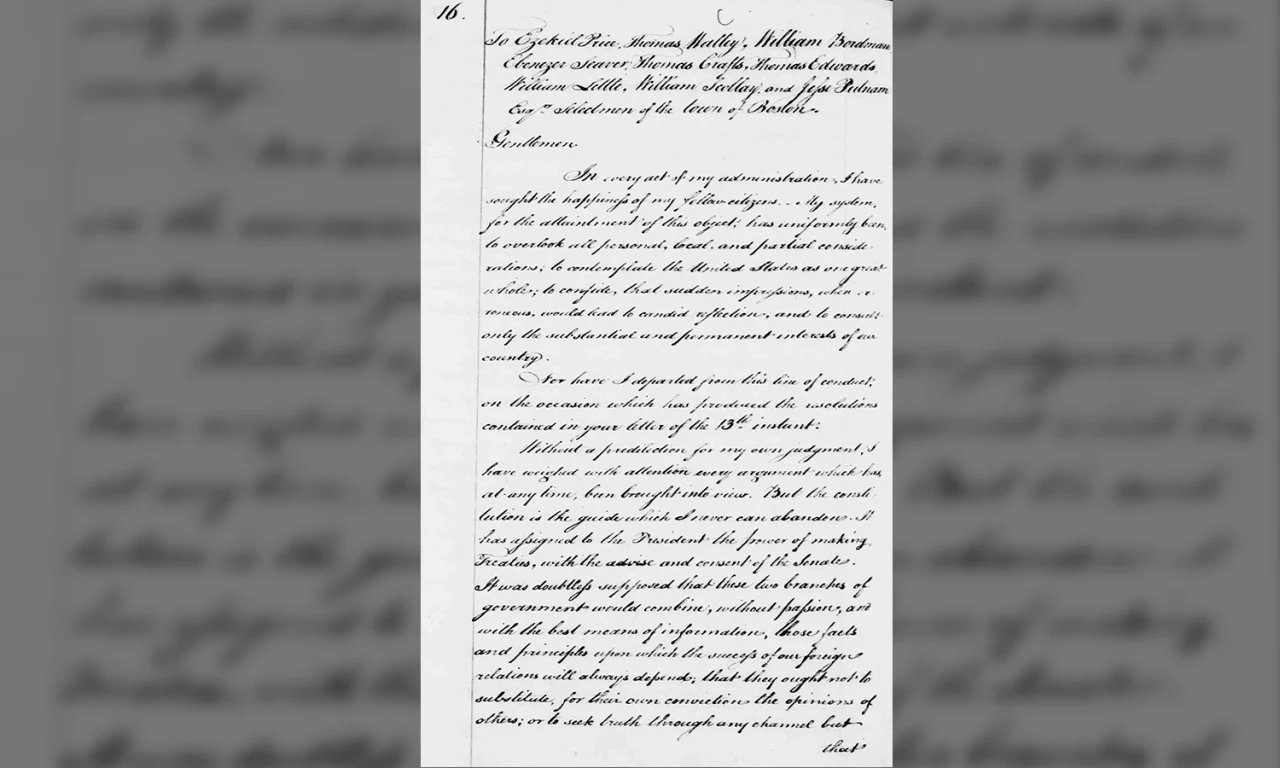 16.
To Ezekiel Price, Thomas Walley, William Bordman,
Ebenezer Seaver, Thomas Crafts, Thomas Edwards,
William Little, William Scollay, and Jesse Putnam
Esqrs. Selectmen of the town of Boston.
Gentlemen
In every act of my administration, I have
sought the happiness of my fellow-citizens. My system,
for the attainment of this object, has uniformly been,
to overlook all personal, local, and partial conside-
rations; to contemplate the United States as one great
whole; to confide, that sudden impressions, when er-
roneous, would lead to candid reflection, and to consult
only the substantial and permanent interests of our
country.
Nor have I departed from this line of conduct,
on the occasion which has produced the resolutions
contained in your letter of the 13th instant.
Without a predilection for my own judgment, I
have weighed with attention every argument which has,
at any time, been brought into view. But the consti-
tution is the guide which I never can abandon. It
has assigned to the President the power of making
Treaties, with the advise and consent of the Senate.
It was doubtless supposed that these two branches of
government would combine, without passion, and
with the best means of information, those facts
and principles upon which the success of our foreign
relations will always depend; that they ought not to
substitute, for their own conviction the opinions of
others; or to seek truth through any channel but
that